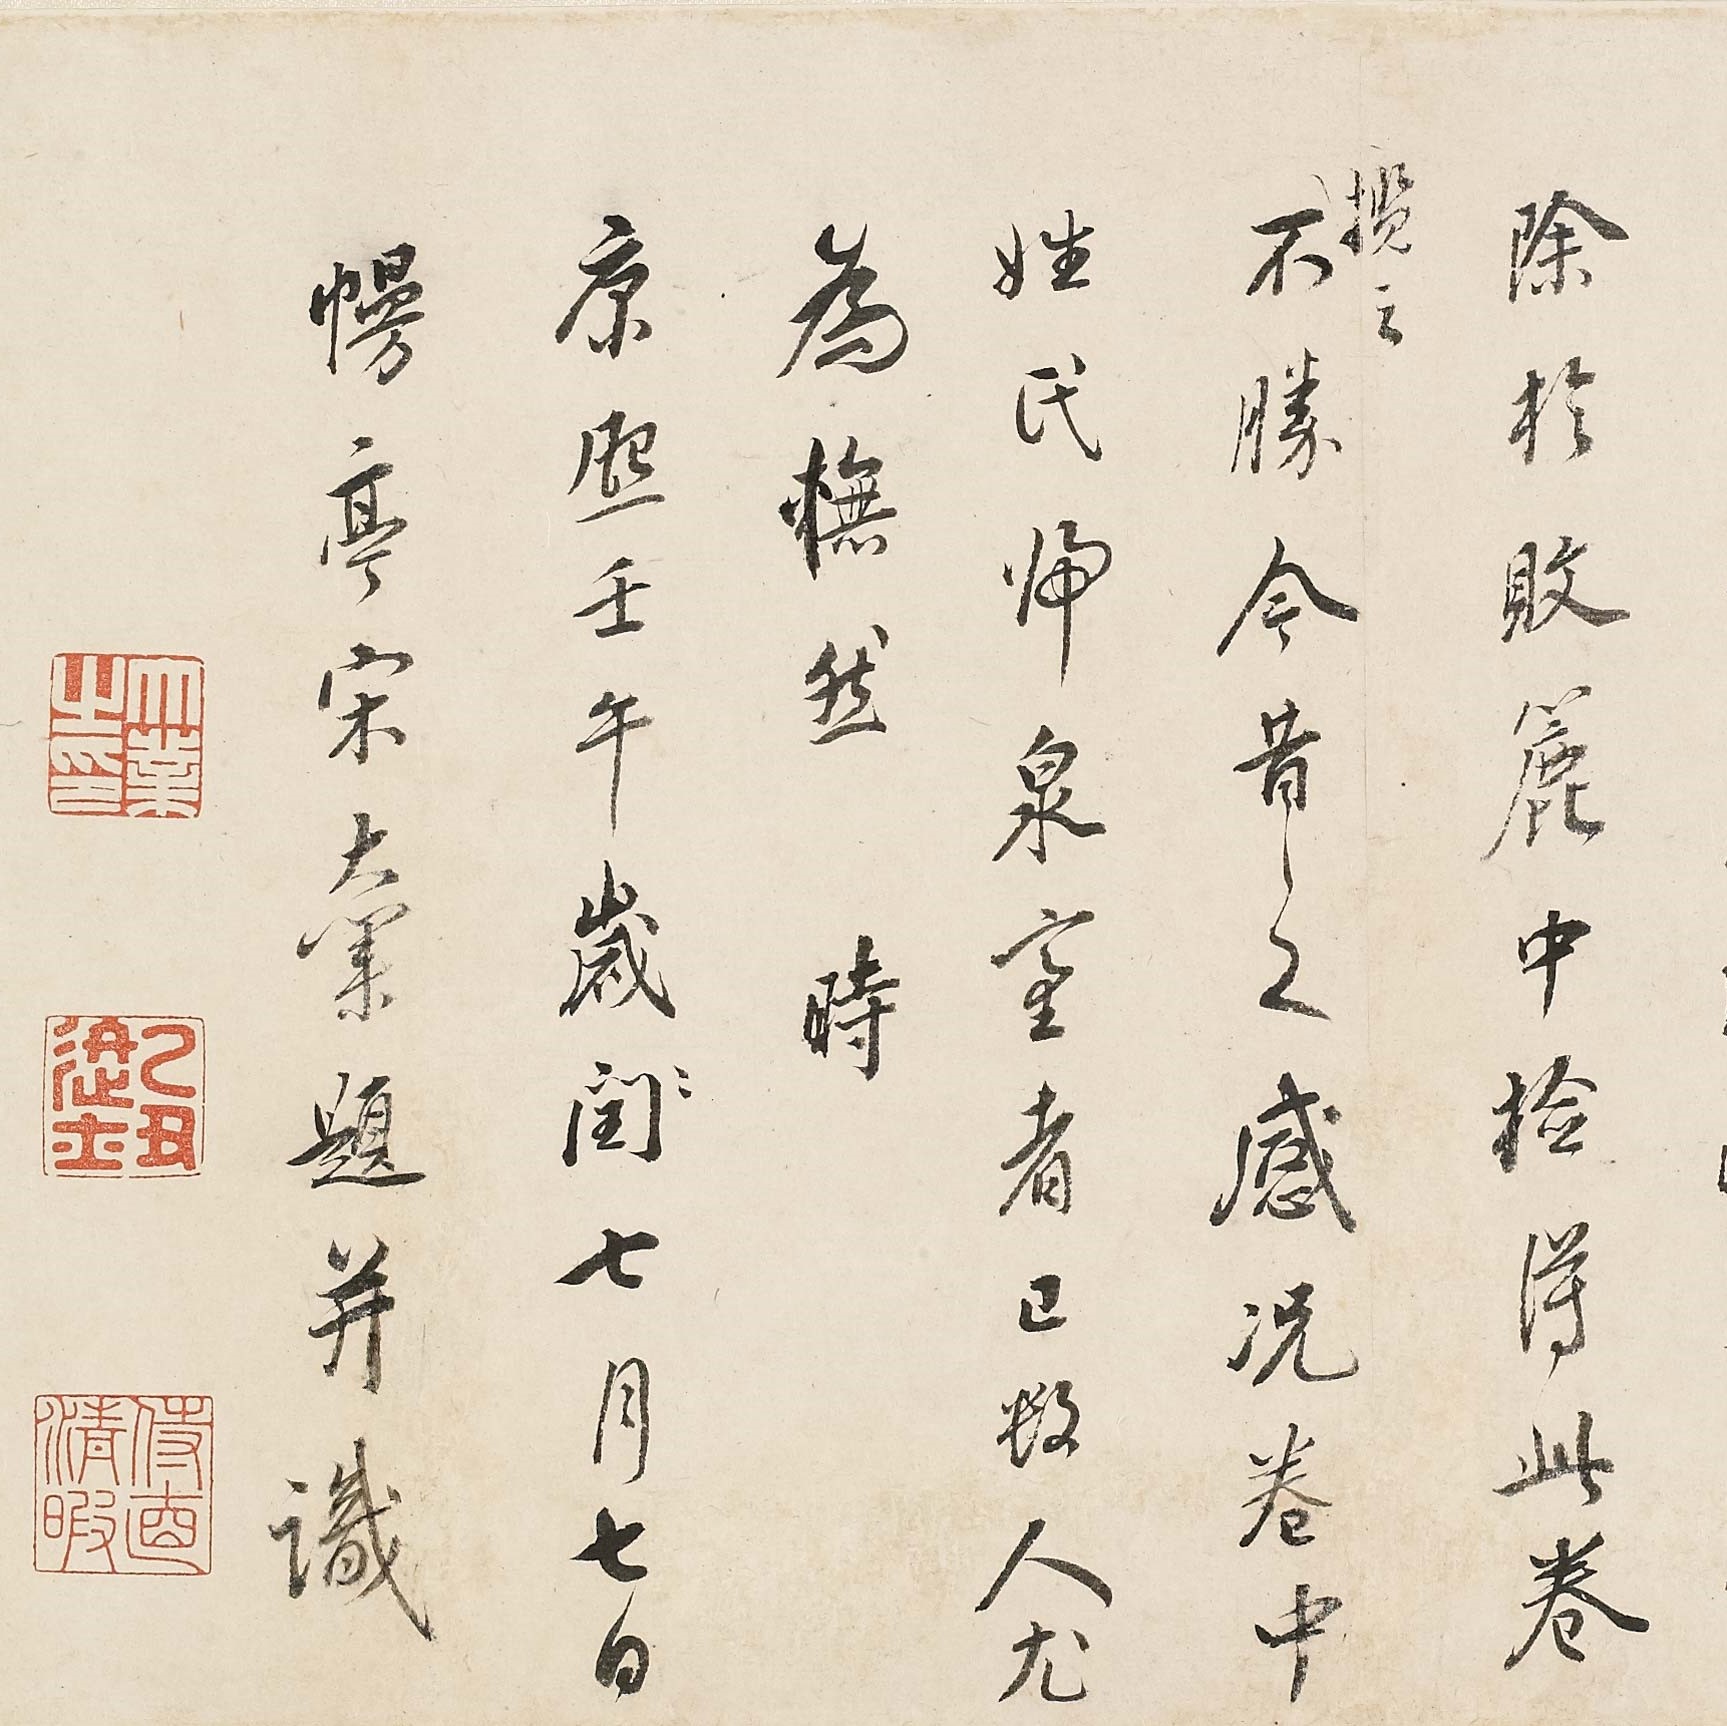 除於敗簏中撿得此卷
攬之
不勝今昔之感况卷中
姓氏歸泉室者已数人尤
為憮然 時
康熙壬午歲閏七月七日
幔亭宋大業題并識
大業之印
侍直清暇